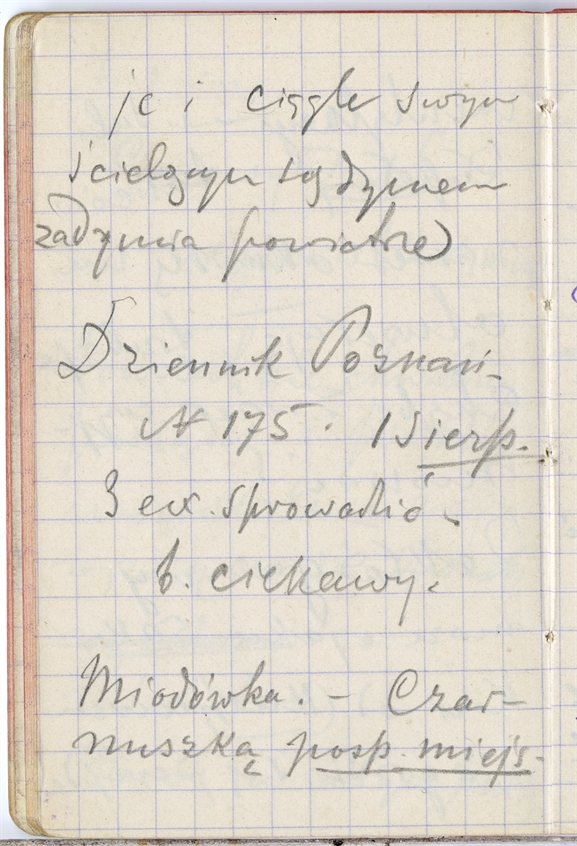 je i ciągle swym
ścielącym się dymem
zadymia powietrze)
Dziennik Poznań-
N 175. 1 Sierp.
3 ex. sprowadzić -
b. ciekawy.
Miodówka. - Czar-
nuszką posp. miejs.